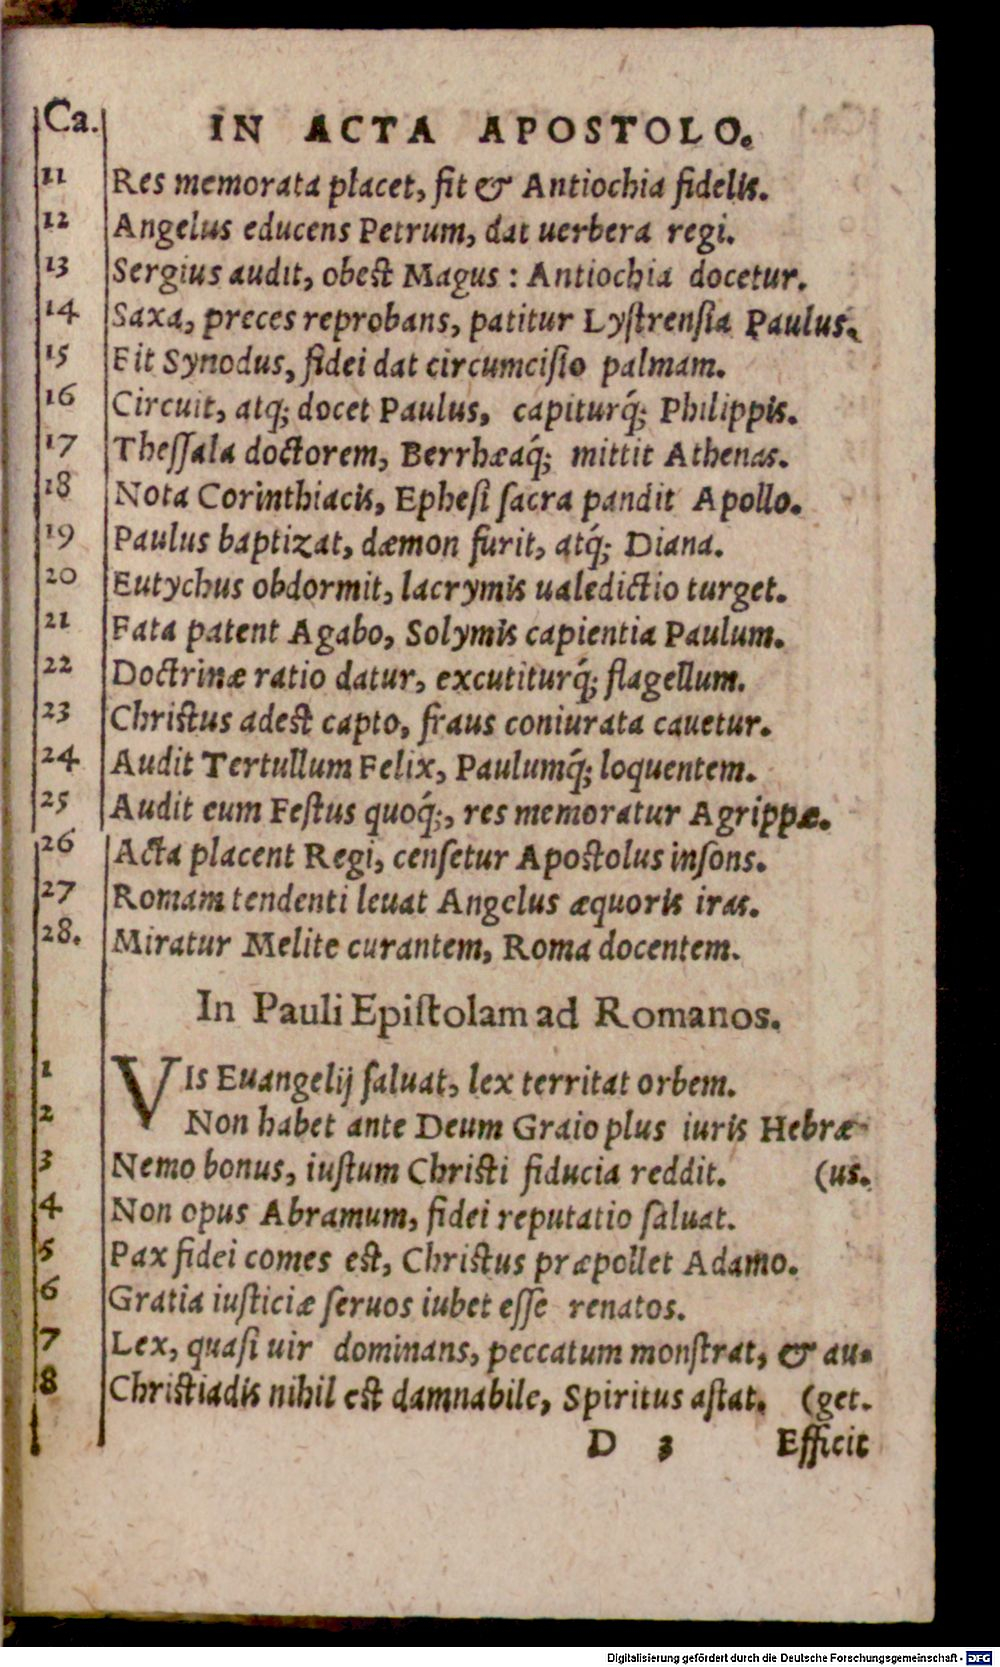 Ca. IN ACTA APOSTOLO.
11 Res memorata placet, fit & Antiochia fidelis.
12 Angelus educens Petrum, dat uerbera regi.
13 Sergius audit, obest Magus : Antiochia docetur.
14 Saxa, preces reprobans, patitur Lystrensia Paulus.
15 Fit Synodus, fidei dat circumcisio palmam.
16 Circuit, atq; docet Paulus, capiturq́; Philippis.
17 Thessala doctorem, Berrhæaq́; mittit Athenas.
18 Nota Corinthiacis, Ephesi sacra pandit Apollo.
19 Paulus baptizat, dæmon furit, atq́; Diana.
20 Eutychus obdormit, lacrymis ualedictio turget.
21 Fata patent Agabo, Solymis capientia Paulum.
22 Doctrinæ ratio datur, excutiturq́; flagellum.
23 Christus adest capto, fraus coniurata cauetur.
24 Audit Tertullum Felix, Paulumq́; loquentem.
25 Audit eum Festus quoq́;, res memoratur Agrippæ.
26 Acta placent Regi, censetur Apostolus insons.
27 Romam tendenti leuat Angelus æquoris iras.
28. Miratur Melite curantem, Roma docentem.
In Pauli Epistolam ad Romanos.
1 VIs Euangelij saluat, lex territat orbem.
2 Non habet ante Deum Graio plus iuris Hebræ-
3 Nemo bonus, iustum Christi fiducia reddit. (us.
4 Non opus Abramum, fidei reputatio saluat.
5 Pax fidei comes est, Christus præpollet Adamo.
6 Gratia iusticiæ seruos iubet esse renatos.
7 Lex, quasi uir dominans, peccatum monstrat, & au-
8 Christiadis nihil est damnabile, Spiritus astat. (get.
D 3 Efficit
Digitalisierung gefördert durch die Deutsche Forschungsgemeinschaft - DFG